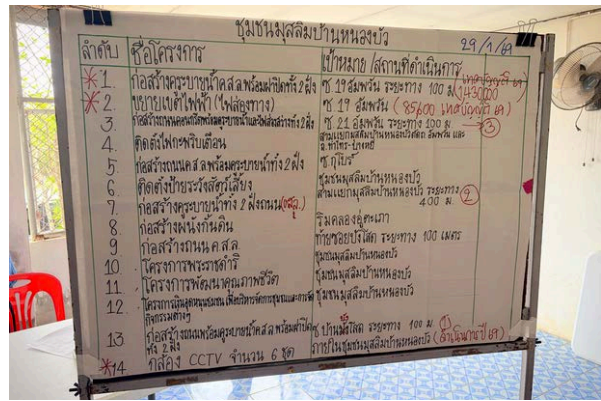 ชุมชนมุสลิมบ้านหนองบัว
29/1/69
ลำดับ ชื่อโครงการ เป้าหมาย/สถานที่ดำเนินการ
*1. ก่อสร้างคูระบายน้ำค.ส.ลพร้อมฝาปิดทั้ง 2 ฝั่ง ซ.19 อัมพวัน ระยะทาง 100 ม.
*2. ขยายเขตไฟฟ้า (ไฟส่องทาง) ซ.19 อัมพวัน (85,600 เทศบัญญัติ 69)
3. ซ.21 อัมพวัน ระยะทาง 100 ม. → 3
4. ติดตั้งไฟกะพริบเตือน สามแยกมุสลิมบ้านหนองบัว
5. ก่อสร้างถนนค.ส.ล.พร้อมคูระบายน้ำทั้ง 2 ฝั่ง ซ.กุโบร์
6. ติดตั้งป้ายระวังสัตว์เลี้ยง ชุมชนมุสลิมบ้านหนองบัว
7. ก่อสร้างคูระบายน้ำทั้ง 2 ฝั่งถนน สามแยกมุสลิมบ้านหนองบัว ระยะทาง 400 ม. 2
8. ก่อสร้างผนังกั้นดิน ริมคลองอู่ตะเภา
9. ก่อสร้างถนน ค.ส.ล. ท้ายซอยบังโสด ระยะทาง 100 เมตร
10 โครงการพระราชดำริ ชุมชนมุสลิมบ้านหนองบัว
11 โครงการพัฒนาคุณภาพชีวิต ชุมชนมุสลิมบ้านหนองบัว
12. โครงการเงินอุดหนุนชุมชน เพื่อบริหารจัดการชุมชนและการจัดกิจกรรมต่างๆ ชุมชนมุสลิมบ้านหนองบัว
13. ก่อสร้างถนนพร้อมคูระบายน้ำค.ส.ลพร้อมฝาปิดทั้ง 2 ฝั่ง ระยะทาง 100 ม. 1
*14 กล้อง CCTV จำนวน 6 ชุด ภายในชุมชนมุสลิมบ้านหนองบัว (ดำเนินการปี 69)